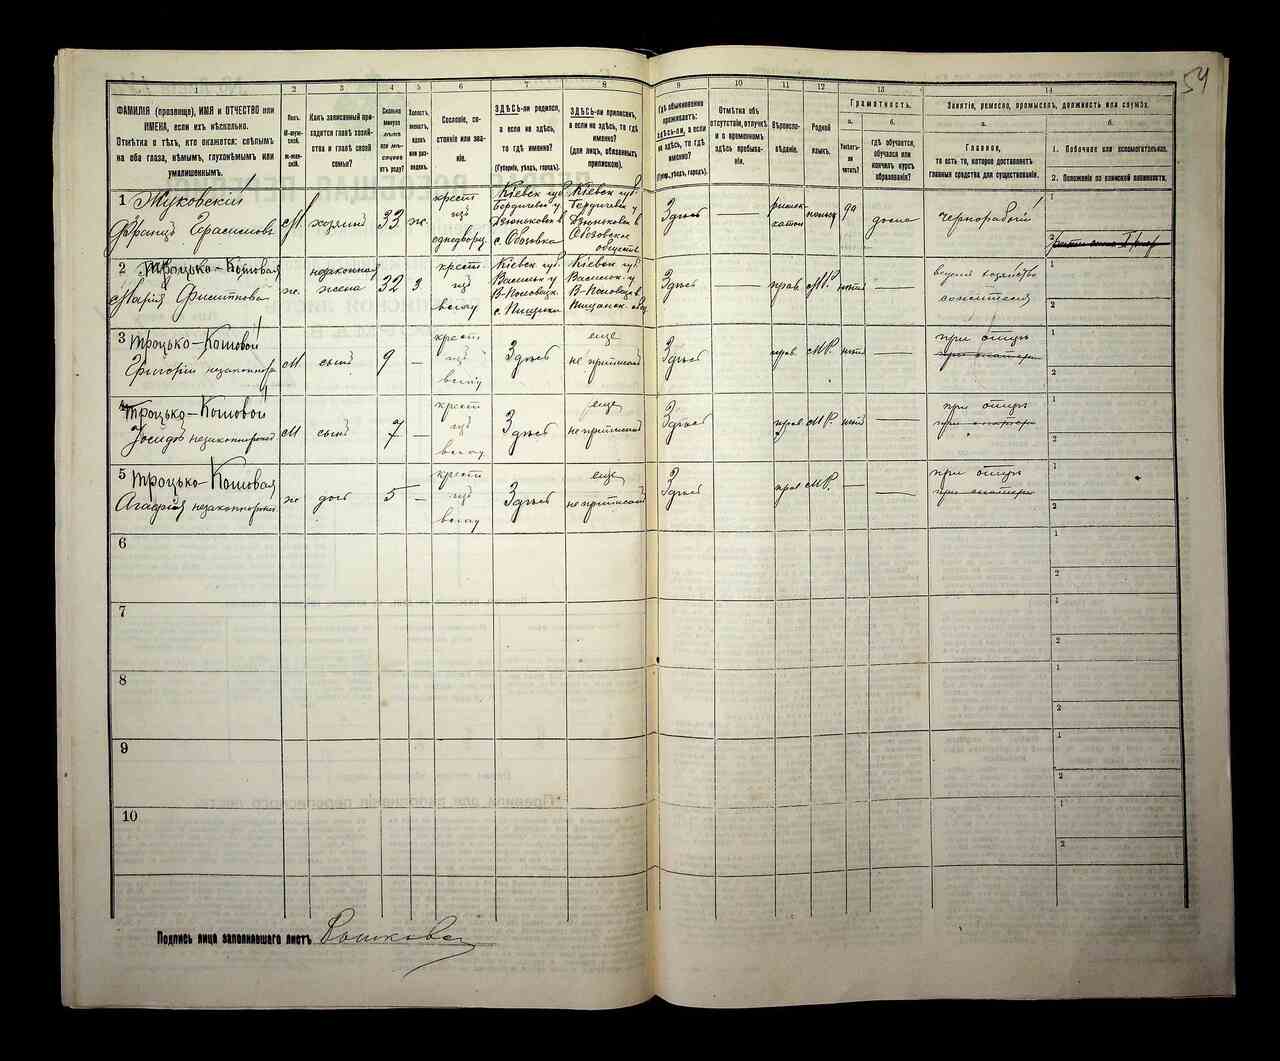 54
1 2 3 4 5 6 7 8 9 10 11 12 13 14
ФАМИЛІЯ (прозвище), ИМЯ и ОТЧЕСТВО или
ИМЕНА, если ихъ нѣсколько.
Отмѣтка о тѣхъ, кто окажется: слѣпымъ
на оба глаза, нѣмымъ, глухонѣмымъ или
умалишеннымъ.
Полъ.
М-муж-
ской.
ж-жен-
скій.
Какъ записанный при-
ходится главѣ хозяй-
ства и главѣ своей
семьи?
Сколько
минуло
лѣтъ
или мѣ-
сяцевъ
отъ роду?
Холостъ,
женатъ,
вдовъ
или раз-
веденъ.
Сословіе, со-
стояніе или зва-
ніе.
ЗДѢСЬ-ли родился,
а если не здѣсь,
то гдѣ именно?
(Губернія, уѣздъ, городъ).
ЗДѢСЬ-ли приписанъ,
а если не здѣсь, то гдѣ
именно?
(для лицъ, обязанныхъ
припискою).
Гдѣ обыкновенно
проживаетъ:
ЗДѢСЬ-ли, а если
не здѣсь, то гдѣ
именно?
(Губер., уѣздъ, городъ).
Отмѣтка объ
отсутствіи, отлучкѣ
и о временномъ
здѣсь пребыва-
ніи.
Вѣроиспо-
вѣданіе.
Родной
языкъ.
Грамотность.
а.
Умѣетъ-
ли
читать?
б.
гдѣ обучается,
обучался или
кончилъ курсъ
образованія?
Занятіе, ремесло, промыселъ, должность или служба.
а.
Главное,
то есть то, которое доставляетъ
главныя средства для существованія.
б.
1. Побочное или вспомогательное.
2. Положеніе по воинской повинности.
1 Жуковскій
Францъ Герасимовъ
М. хозяинъ 33 ж.
крест
изъ
однодворц.
Кіевск губ
Бердичевс у
Дзюньковск в
с. Обозовка
Кіевск губ
Бердичев у
Дзюньковск в
Обозовское
обществ
Здѣсь — римск-
католи польск да дома чернорабочій
1
2 Троцько-Кошовая
Марія
ж. незаконная
жена 32 з
крест
изъ
Кіевск губ
Васильк у
с. Пищики
Кіевск губ
Василек. у
Здѣсь — прав. МР. нѣтъ —
1
2
3 Троцько-Кошовой
Григорій незаконнор
М. сынъ 9 —
крест
изъ
Здѣсь
еще
не приписанъ
Здѣсь прав МР. нѣтъ —
при отцѣ
при матери
1
2
4 Троцько-Кошовой
Іосифъ незаконнорож
М сынъ 7 —
крест
изъ
Здѣсь
еще
не приписанъ
Здѣсь прав МР. нѣтъ —
при отцѣ
при матери
1
2
5 Троцько-Кошовая
Агафія незаконнорож
ж дочь 5 —
крест
изъ
Здѣсь
еще
не приписана
Здѣсь прав МР. — —
при отцѣ
при матери
1
2
6
1
2
7
1
2
8
1
2
9
1
2
10
1
2
Подпись лица заполнившаго листъ